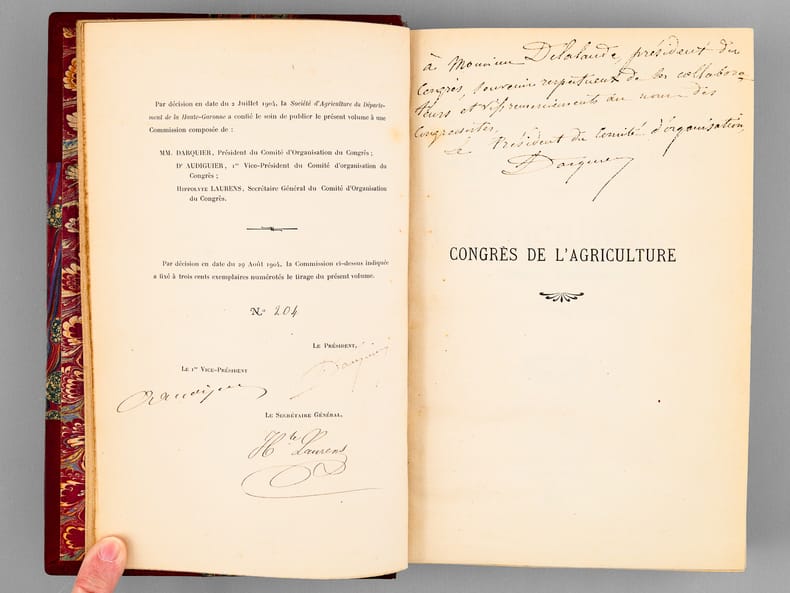 Par décision en date du 2 Juillet 1904, la Société d'Agriculture du Départe-
ment de la Haute-Garonne a confié le soin de publier le présent volume à une
Commission composée de :
MM. DARQUIER, Président du Comité d'Organisation du Congrès ;
Dr AUDIGUIER, 1er Vice-Président du Comité d'organisation du
Congrès ;
Hippolyte LAURENS, Secrétaire Général du Comité d'Organisation
du Congrès.
Par décision en date du 29 Août 1904, la Commission ci-dessus indiquée
a fixé à trois cents exemplaires numérotés le tirage du présent volume.
No 204
Le Président,
Darquier
Le 1er Vice-Président
Le Secrétaire Général,
Hte Laurens
à Monsieur Delalande, président du
Congrès, souvenir respectueux de ses collabora-
teurs et vifs remerciements au nom des
Congressistes.
Le Président du Comité d'organisation,
Darquier
CONGRÈS DE L'AGRICULTURE